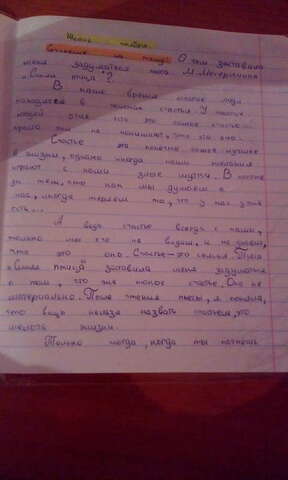 Жизнь с тобой.
Сочинение на тему: О чём заставила
меня задуматься пьеса М. Метерлинка
"Синяя птица"?
В наше время многие люди
находятся в поисках счастья. У многих
людей оно что это самое счастье...
просто они не понимают, что это оно.
Счастье это понятие самое нужное
в жизни, однако иногда наши желания
играют с нами злые шутки. В погоне
за тем, что как мы думаем о
нас, иногда теряем то, что у нас уже
есть...
А ведь счастье всегда с нами,
только мы его не видим, и не знаем,
что это оно. Счастье - это семья. Пьеса
"Синяя птица" заставила меня задуматься
о том, что для меня счастье. Оно не
материально. После чтения пьесы, я поняла,
что вещь нельзя назвать счастьем, это
мелочь жизни.
Только тогда, когда ты поймёшь